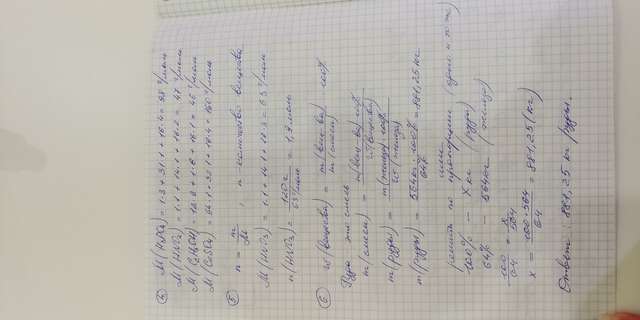 ④ M(H₃PO₄) = 1·3 + 31·1 + 16·4 = 98 г/моль
M(HNO₂) = 1·1 + 14·1 + 16·2 = 47 г/моль
M(C₂H₅OH) = 12·2 + 1·6 + 16·1 = 46 г/моль
M(CuSO₄) = 64·1 + 32·1 + 16·4 = 160 г/моль
⑤ n = m/M, n - количество вещества
M(HNO₃) = 1·1 + 14·1 + 16·3 = 63 г/моль
n(HNO₃) = 120 г / 63 г/моль = 1,9 моль
⑥ w(вещества) = m(вещ-ва)·100% / m(смеси)
Руда это смесь
m(смеси) = m(вещ-ва)·100% / w(вещества)
m(руды) = m(железа)·100% / w(железа)
m(руды) = 564 кг·100% / 64% = 881,25 кг
или
решить по пропорции
100% - x кг (руды)
64% - 564 кг (железа)
100/64 = x/564
x = 100·564 / 64 = 881,25 (кг)
Ответ: 881,25 кг руды.